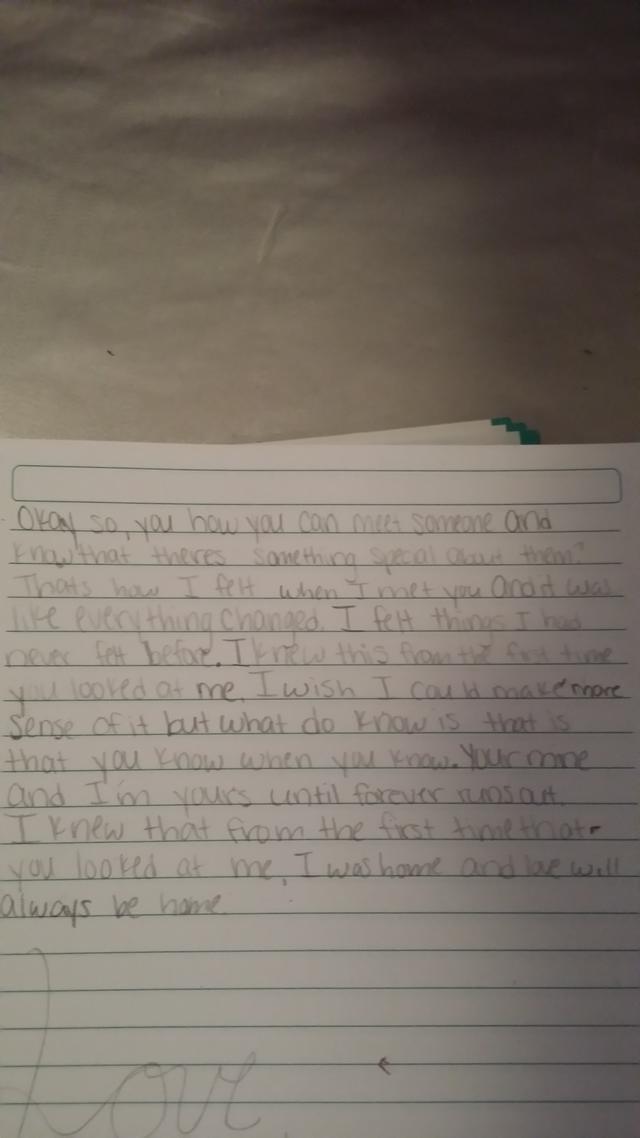 Okay so, you how you can meet someone and
know that theres something special about them?
Thats how I felt when I met you and it was
like everything changed. I felt things I had
never felt before. I knew this from the first time
you looked at me. I wish I could make more
sense of it but what do know is that is
that you know when you know. Your mine
and I'm yours until forever runs out.
I knew that from the first time that
you looked at me, I was home and we will
always be home.
Love